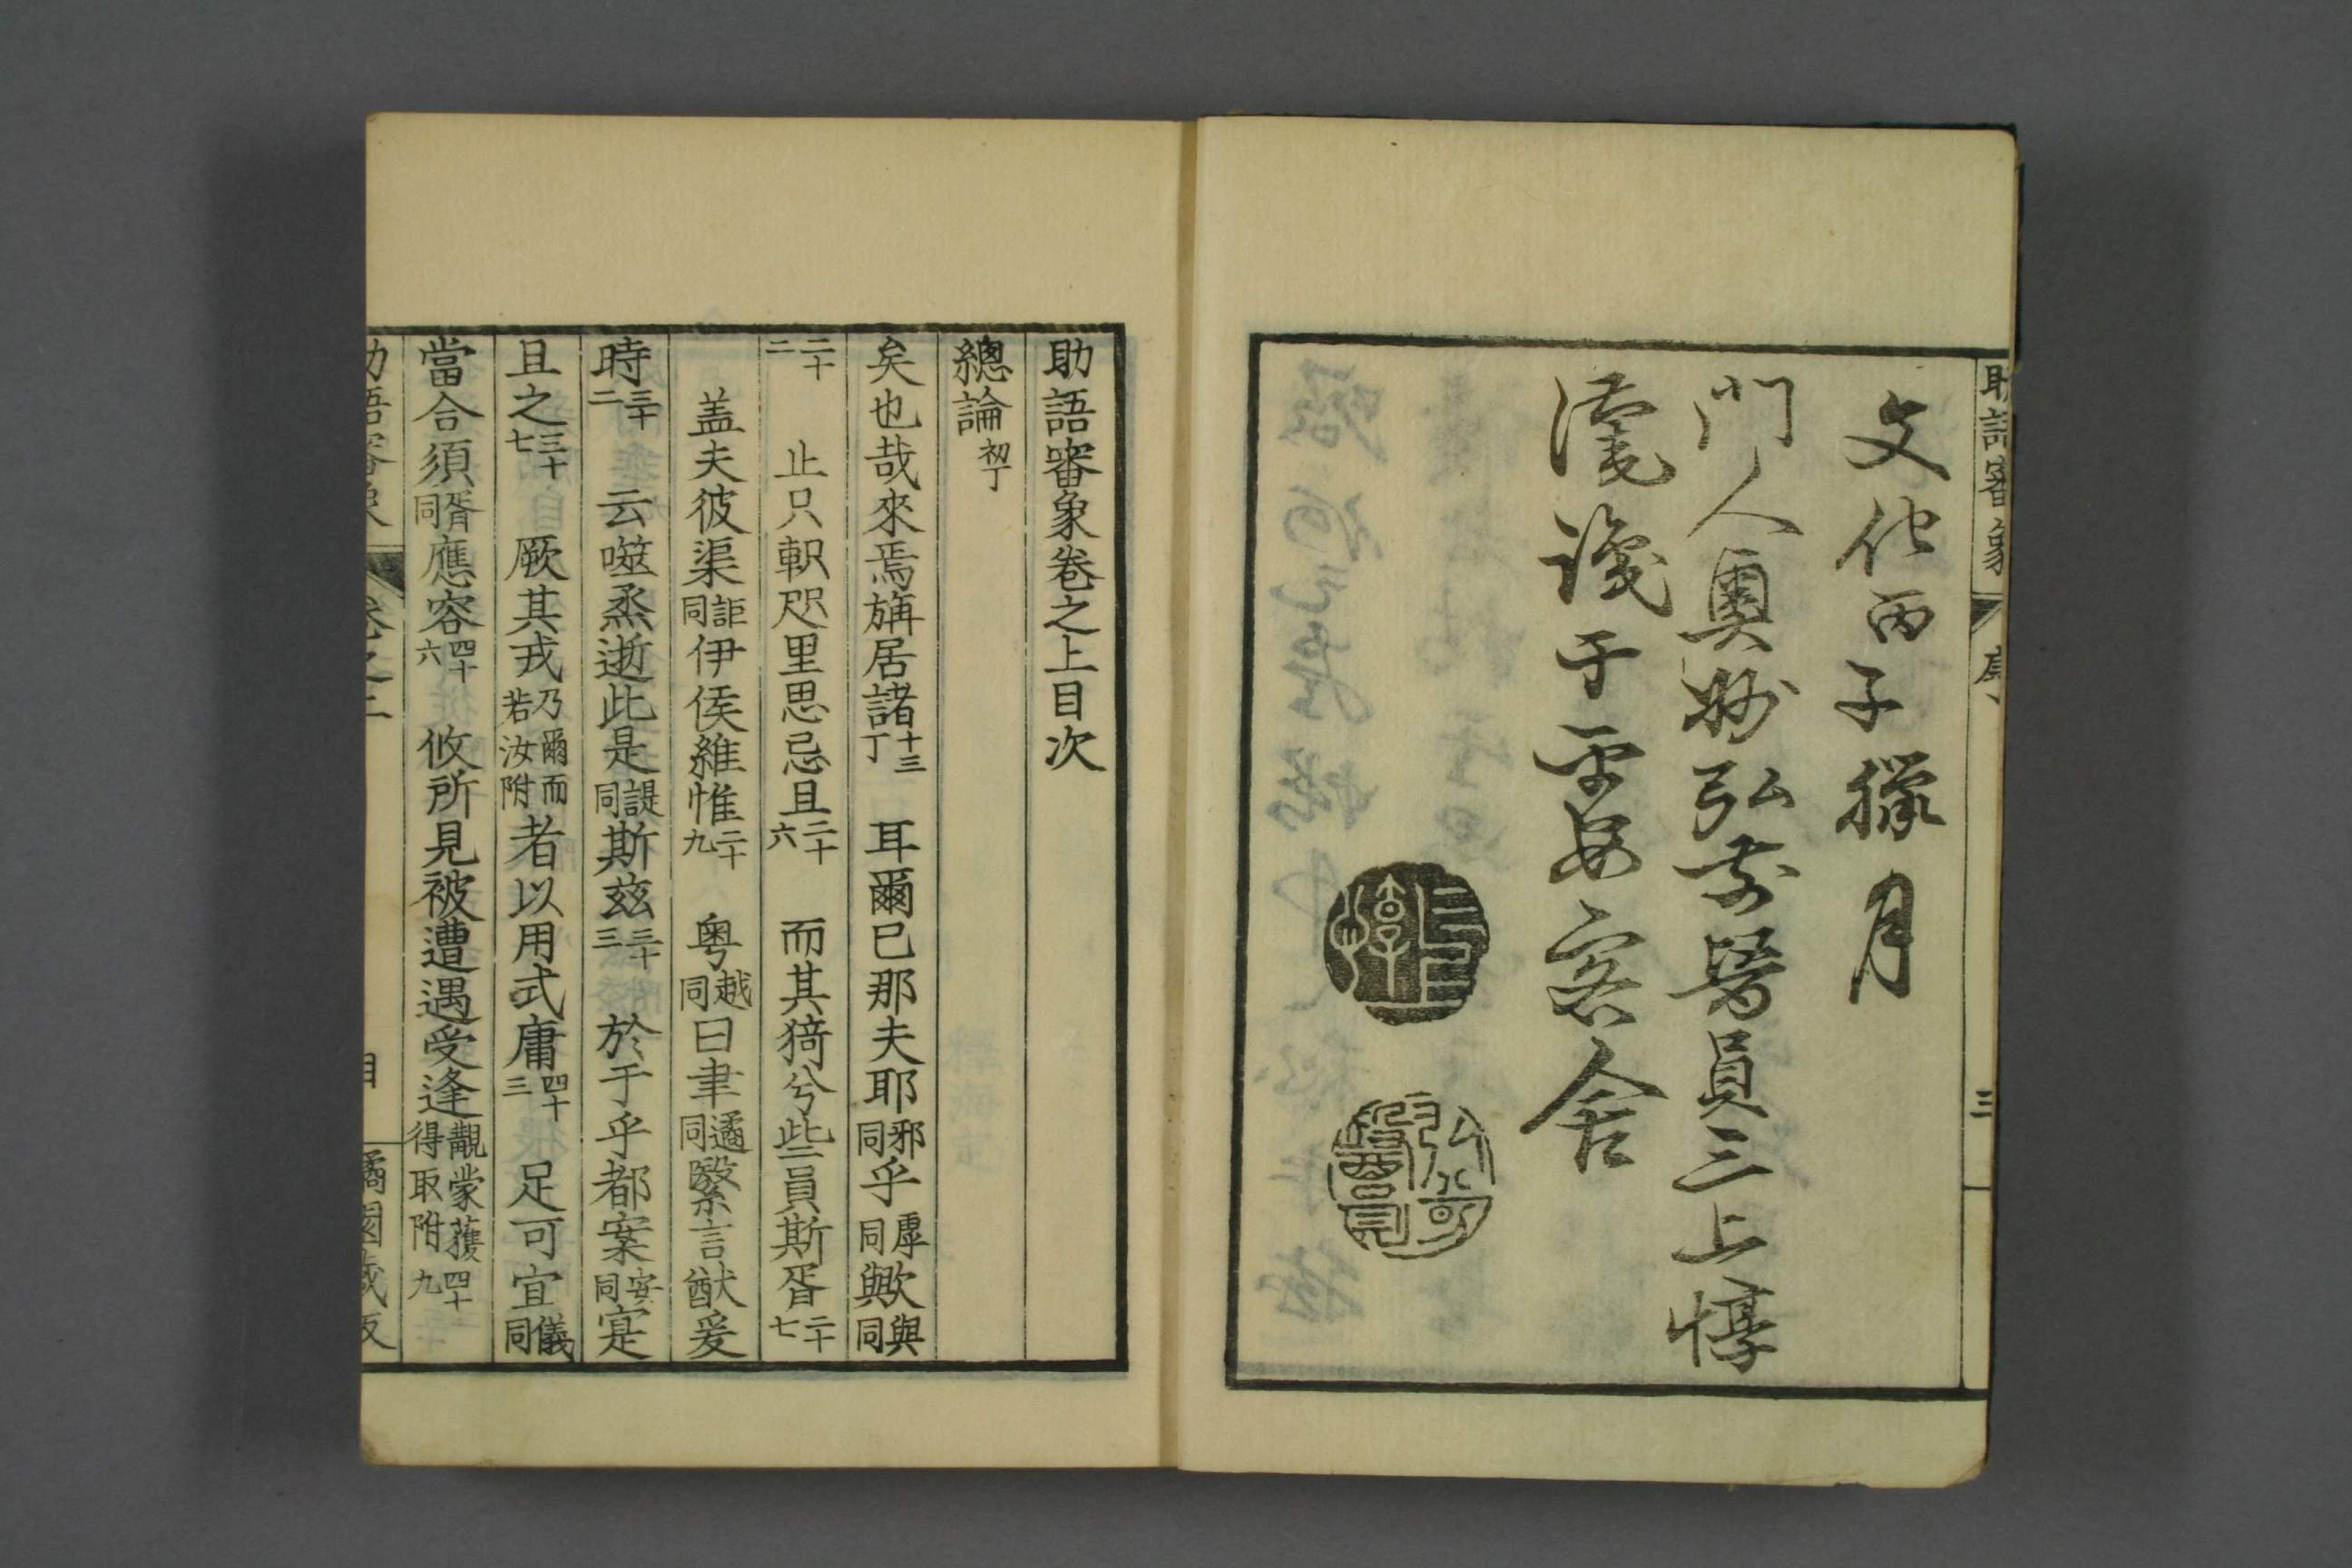 助語審象
序
三
文化丙子獵月
門人奥州弘前醫員三上惇
謹識于平安客舍
助語審象卷之上目次
總論初丁
矣也哉來焉旃居諸十三丁　耳爾已那夫耶邪同乎虖同歟與同
二十二　止只軹咫里思忌且二十六　而其猗兮些員斯胥二十七
盖夫彼渠詎同伊侯維惟二十九　粤越同曰聿遹同繄言猷爰
時三十二　云噬烝逝此是諟同斯兹三十三　於于乎都案安同寔
且之三十七　厥其戎乃爾而若汝附者以用式庸四十三　足可宜儀同
當合須胥同應容四十六　攸所見被遭遇受逢覯蒙獲得取附四十九
助語審象
目